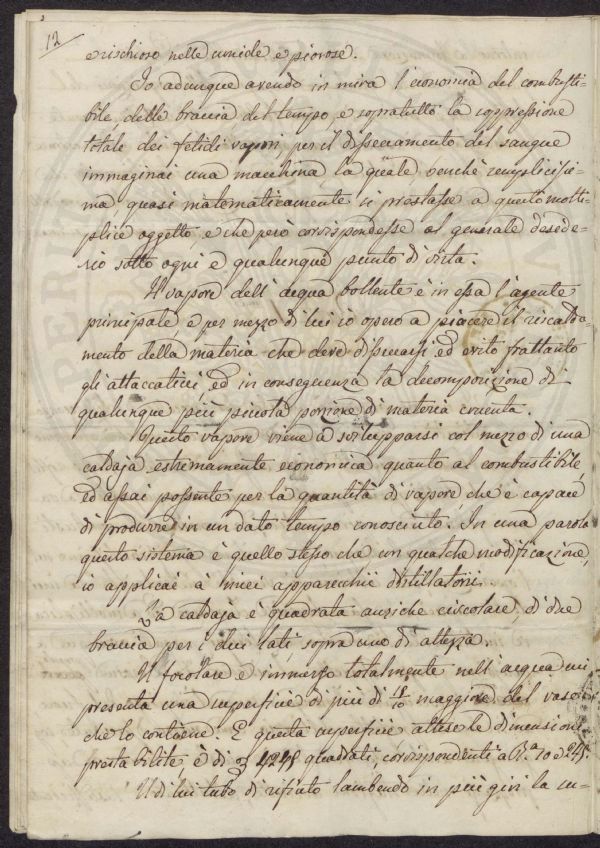 12
e rischioso nelle umide e piovose.
Io adunque avendo in mira l'economia del combusti-
bile, delle braccia del tempo, e sopratutto la soppressione
totale dei fetidi vapori, per il disseccamento del sangue
immaginai una macchina la quale benchè semplicissi-
ma, quasi matematicamente si prestasse a questo molti-
plice oggetto, e che però corrispondesse al generale deside-
rio sotto ogni e qualunque punto di vista.
Il vapore dell'acqua bollente è in essa l'agente
principale e per mezzo di lui io opero a piacere il riscalda-
mento della materia che deve disseccarsi ed evito frattanto
gli attaccaticci ed in conseguenza la decomposizione di
qualunque più piccola porzione di materia cruenta.
Questo vapore viene a svilupparsi col mezzo di una
caldaja estremamente economica quanto al combustibile,
ed assai possente per la quantità di vapore, che è capace
di produrre in un dato tempo conosciuto. In una parola
questo sistema è quello stesso che con qualche modificazione,
io applicai a' miei apparecchii distillatorii.
La caldaja è quadrata anziche circolare, di due
braccia per i dui lati, sopra uno di altezza.
Il focolare è immerso totalmente nell'acqua mi
presenta una superficie di più di maggiore del vaso
che lo contiene. E questa superficie attese le dimensioni
prestabilite è di 4245 quadrati, corrispondenti a B.a 10 e 245.
Il di lui tubo di rifiuto lambendo in più giri la su-